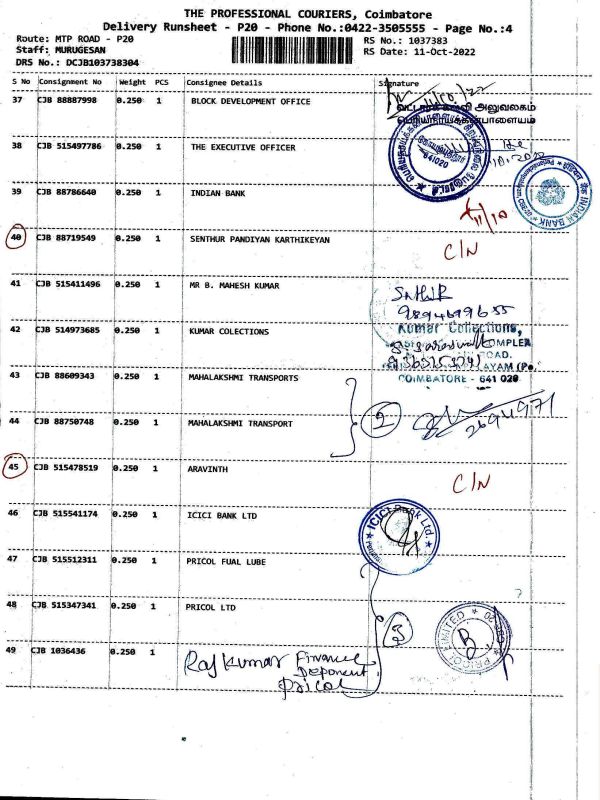 THE PROFESSIONAL COURIERS, Coimbatore
Delivery Runsheet - P20 - Phone No.:0422-3505555 - Page No.:4
Route: MTP ROAD - P20
Staff: MURUGESAN
DRS No.: DCJB103738304
RS No.: 1037383
RS Date: 11-Oct-2022
S No Consignment No Weight PCS Consignee Details Signature
37 CJB 88887998 0.250 1 BLOCK DEVELOPMENT OFFICE
38 CJB 515497786 0.250 1 THE EXECUTIVE OFFICER
641020
39 CJB 88786640 0.250 1 INDIAN BANK
INDIAN BANK
11/10
40 CJB 88719549 0.250 1 SENTHUR PANDIYAN KARTHIKEYAN
C/N
41 CJB 515411496 0.250 1 MR B. MAHESH KUMAR
42 CJB 514973685 0.250 1 KUMAR COLECTIONS
Kumar Collections,
COIMBATORE - 641 020
43 CJB 88609343 0.250 1 MAHALAKSHMI TRANSPORTS
44 CJB 88750748 0.250 1 MAHALAKSHMI TRANSPORT
2
45 CJB 515478519 0.250 1 ARAVINTH
C/N
46 CJB 515541174 0.250 1 ICICI BANK LTD
ICICI Bank Ltd.
47 CJB 515512311 0.250 1 PRICOL FUAL LUBE
48 CJB 515347341 0.250 1 PRICOL LTD
3
PRICOL LIMITED
49 CJB 1036436 0.250 1
Rajkumar Finance
Pricol